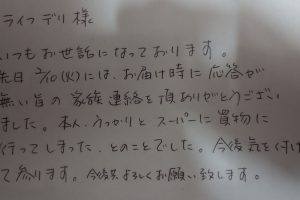 ライフデリ様
いつもお世話になっております。
先日 2/10(火)には、お届け時に 応答が
無い旨の 家族 連絡を 頂ありがとうござい
ました。本人、うっかりと スーパーに 買物に
行ってしまった、とのことでした。今後 気を付け
て 参ります。今後共 よろしくお願い 致します。